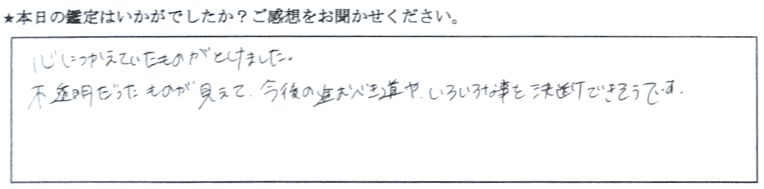 ★本日の鑑定はいかがでしたか?ご感想をお聞かせください。
心につかえていたものがとけました。
不透明だったものが見えて、今後の進むべき道や、いろいろな事を決断できそうです。